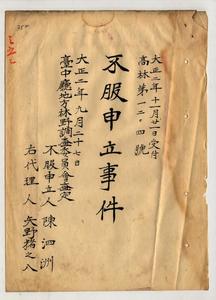 大正二年十一月廿一日受付
高林第一二四號
不服申立事件
大正二年九月二十七日
臺中廳地方林野調査委員會査定
不服申立人 陳泗洲
右代理人 矢野猪之八